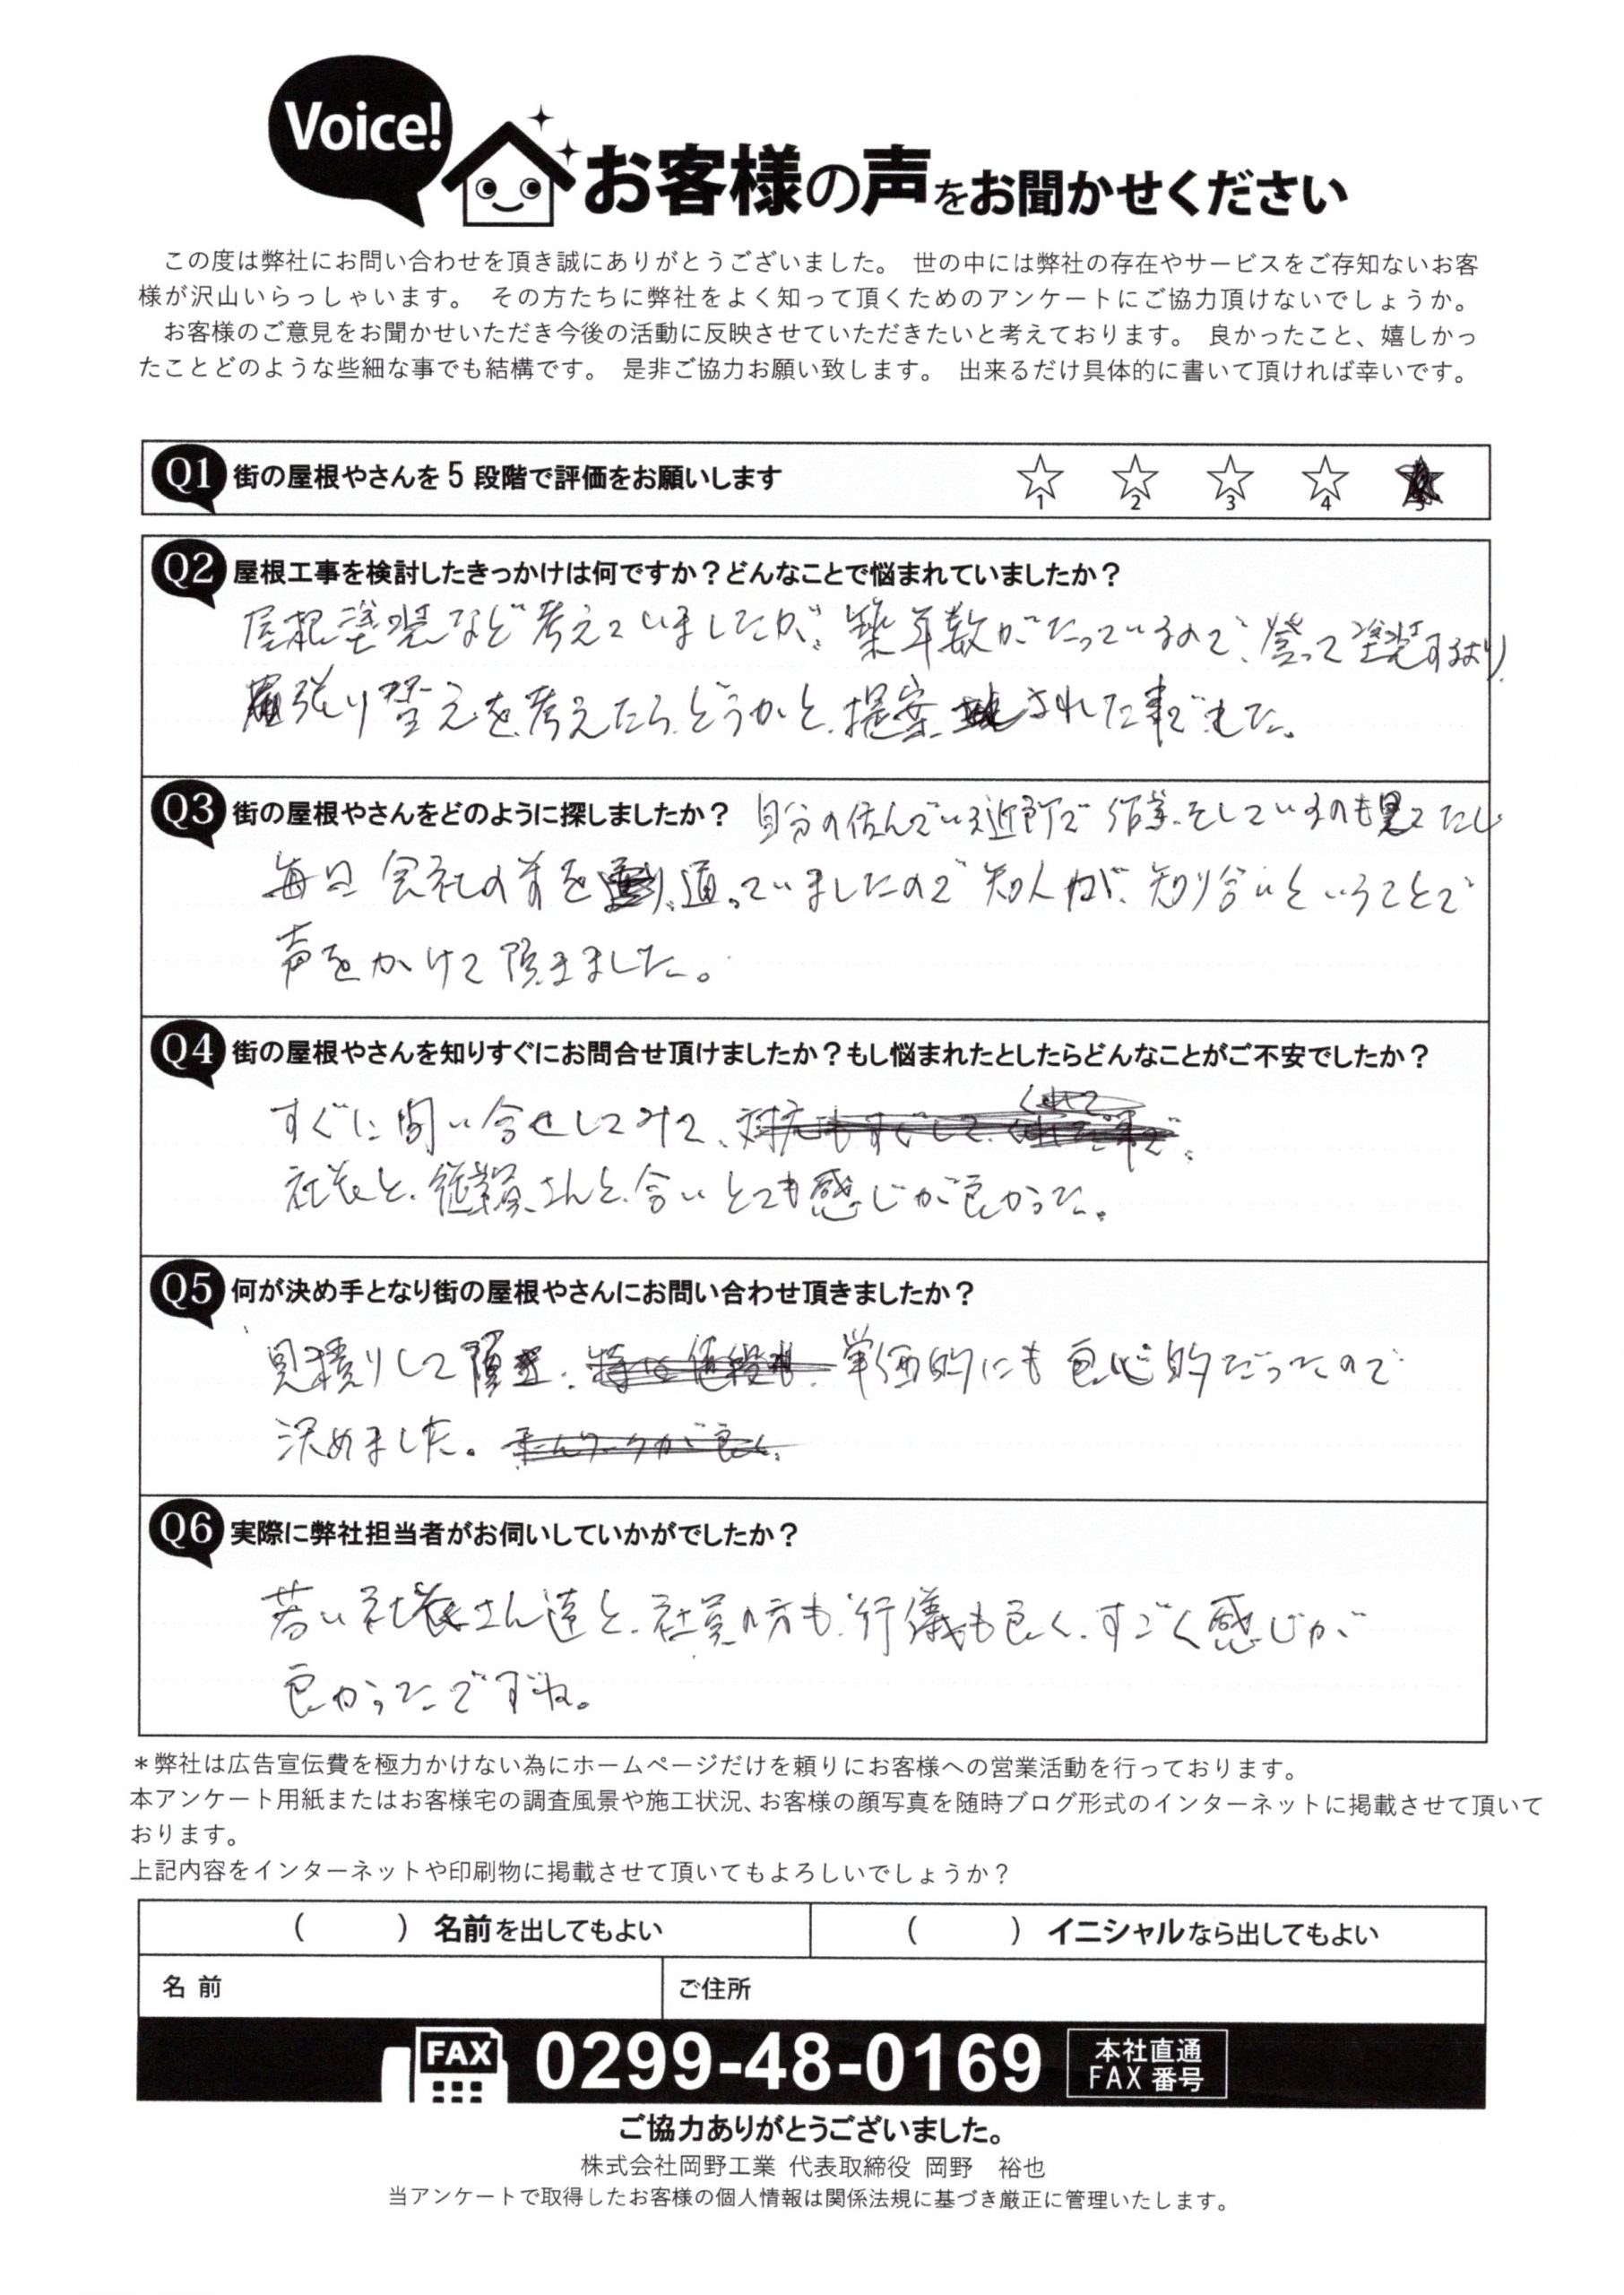 Voice!
お客様の声をお聞かせください
この度は弊社にお問い合わせを頂き誠にありがとうございました。 世の中には弊社の存在やサービスをご存知ないお客
様が沢山いらっしゃいます。 その方たちに弊社をよく知って頂くためのアンケートにご協力頂けないでしょうか。
お客様のご意見をお聞かせいただき今後の活動に反映させていただきたいと考えております。 良かったこと、嬉しかっ
たことどのような些細な事でも結構です。 是非ご協力お願い致します。 出来るだけ具体的に書いて頂ければ幸いです。
Q1 街の屋根やさんを5段階で評価をお願いします ☆1 ☆2 ☆3 ☆4 ★5
Q2 屋根工事を検討したきっかけは何ですか？どんなことで悩まれていましたか？
屋根塗装など考えていましたが、築年数がたっているので、登って塗装するより
張り替えを考えたらどうかと提案された事でした。
Q3 街の屋根やさんをどのように探しましたか？ 自分の住んでいる近所で作業をしているのも見てたし
毎日会社の前を通っていましたので知人が、知り合いということで
声をかけて頂きました。
Q4 街の屋根やさんを知りすぐにお問合せ頂けましたか？もし悩まれたとしたらどんなことがご不安でしたか？
すぐに問い合せしてみて、
社長と、従業員さんと、会いとても感じが良かった。
Q5 何が決め手となり街の屋根やさんにお問い合わせ頂きましたか？
見積りして頂き、単価的にも良心的だったので
決めました。
Q6 実際に弊社担当者がお伺いしていかがでしたか？
若い社長さん達と、社員の方も行儀も良く、すごく感じが
良かったですね。
＊弊社は広告宣伝費を極力かけない為にホームページだけを頼りにお客様への営業活動を行っております。
本アンケート用紙またはお客様宅の調査風景や施工状況、お客様の顔写真を随時ブログ形式のインターネットに掲載させて頂いて
おります。
上記内容をインターネットや印刷物に掲載させて頂いてもよろしいでしょうか？
（　　　）名前を出してもよい （　　　）イニシャルなら出してもよい
名前 ご住所
FAX 0299-48-0169 本社直通
FAX番号
ご協力ありがとうございました。
株式会社岡野工業 代表取締役 岡野　裕也
当アンケートで取得したお客様の個人情報は関係法規に基づき厳正に管理いたします。